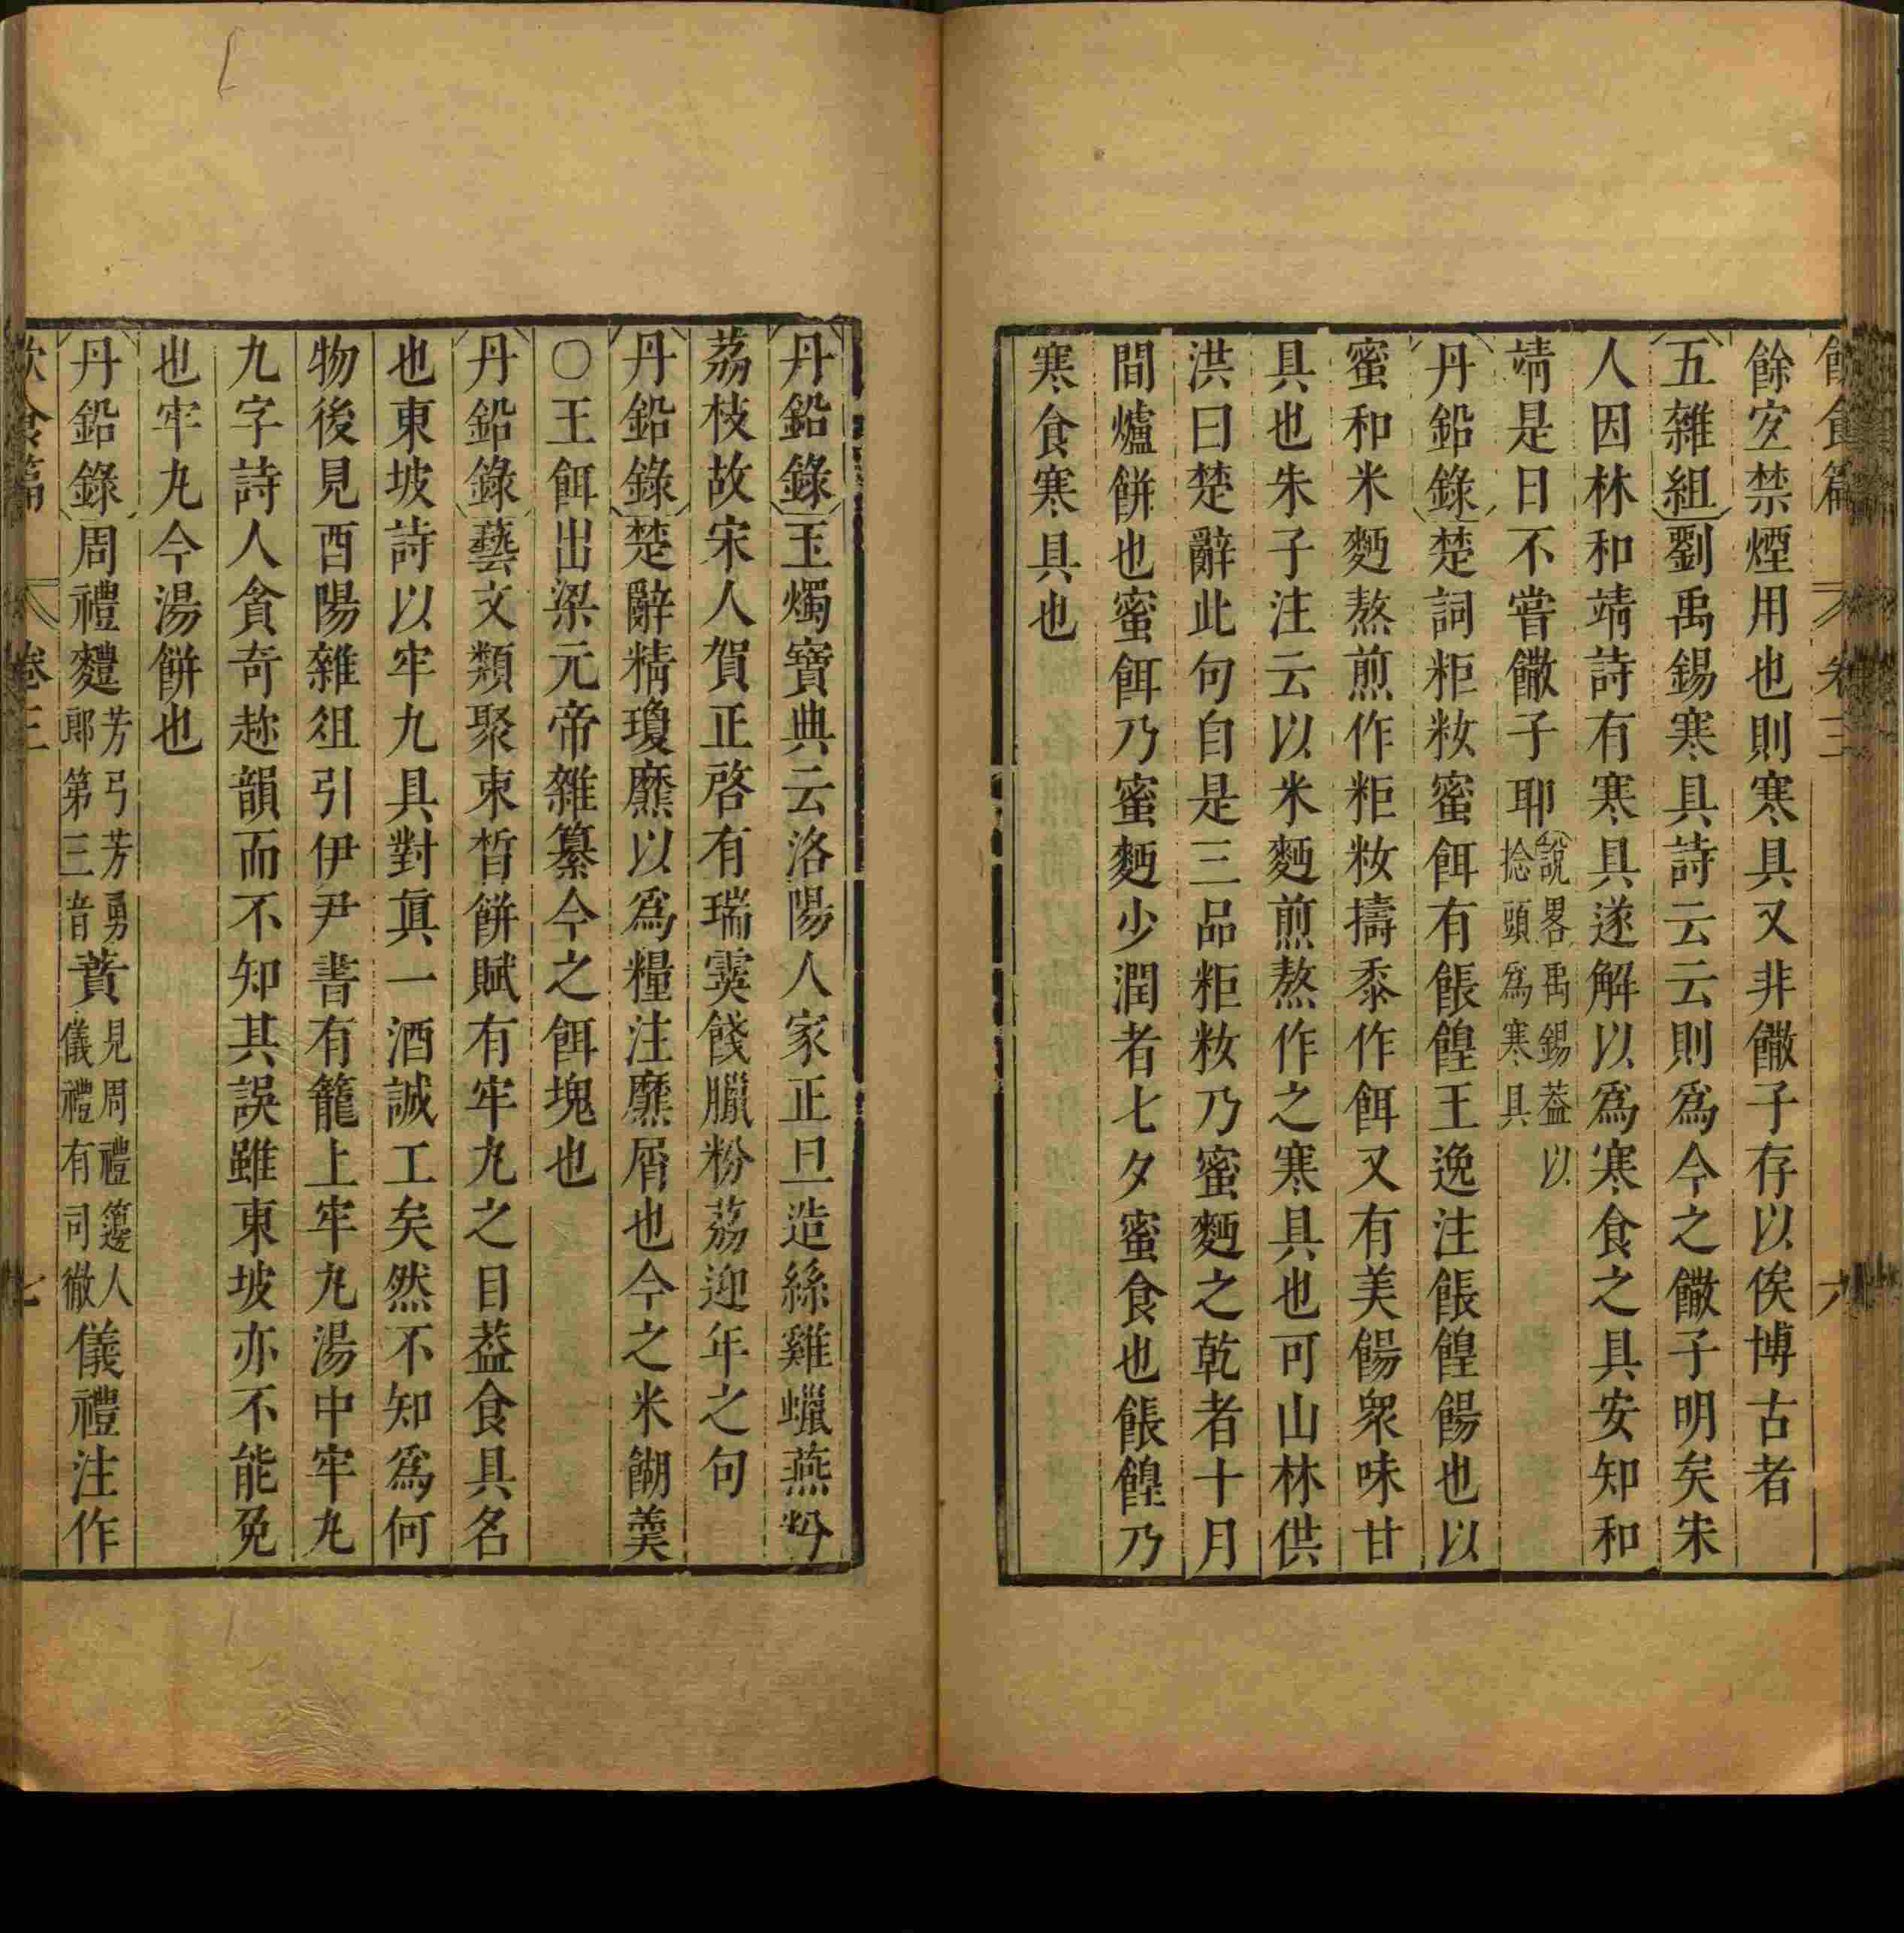 餘㝎禁煙用也則寒具又非饊子存以俟博古者
五雜組劉禹錫寒具詩云云則爲今之饊子明矣宋
人因林和靖詩有寒具遂解以爲寒食之具安知和
靖是日不嘗饊子耶說畧禹錫葢以
捻頭爲寒具
丹鉛錄楚詞粔籹蜜餌有餦餭王逸注餦餭餳也以
蜜和米麪熬煎作粔籹擣黍作餌又有美餳衆味甘
具也朱子注云以米麪煎熬作之寒具也可山林供
洪曰楚辭此句自是三品粔籹乃蜜麪之乾者十月
間爐餅也蜜餌乃蜜麪少潤者七夕蜜食也餦餭乃
寒食寒具也
丹鉛錄玉燭寶典云洛陽人家正旦造絲雞蠟燕粉
荔枝故宋人賀正啓有瑞霙餞臘粉荔迎年之句
丹鉛錄楚辭精瓊爢以爲糧注爢屑也今之米餬羹
〇王餌出梁元帝雜纂今之餌塊也
丹鉛錄藝文類聚束晳餅賦有牢九之目葢食具名
也東坡詩以牢九具對眞一酒誠工矣然不知爲何
物後見酉陽雜俎引伊尹書有籠上牢丸湯中牢丸
九字詩人貪奇趂韻而不知其誤雖東坡亦不能免
也牢丸今湯餅也
丹鉛錄周禮麷芳弓芳勇
郞第三音蕡見周禮籩人
儀禮有司徹儀禮注作
飲食篇 卷三 七